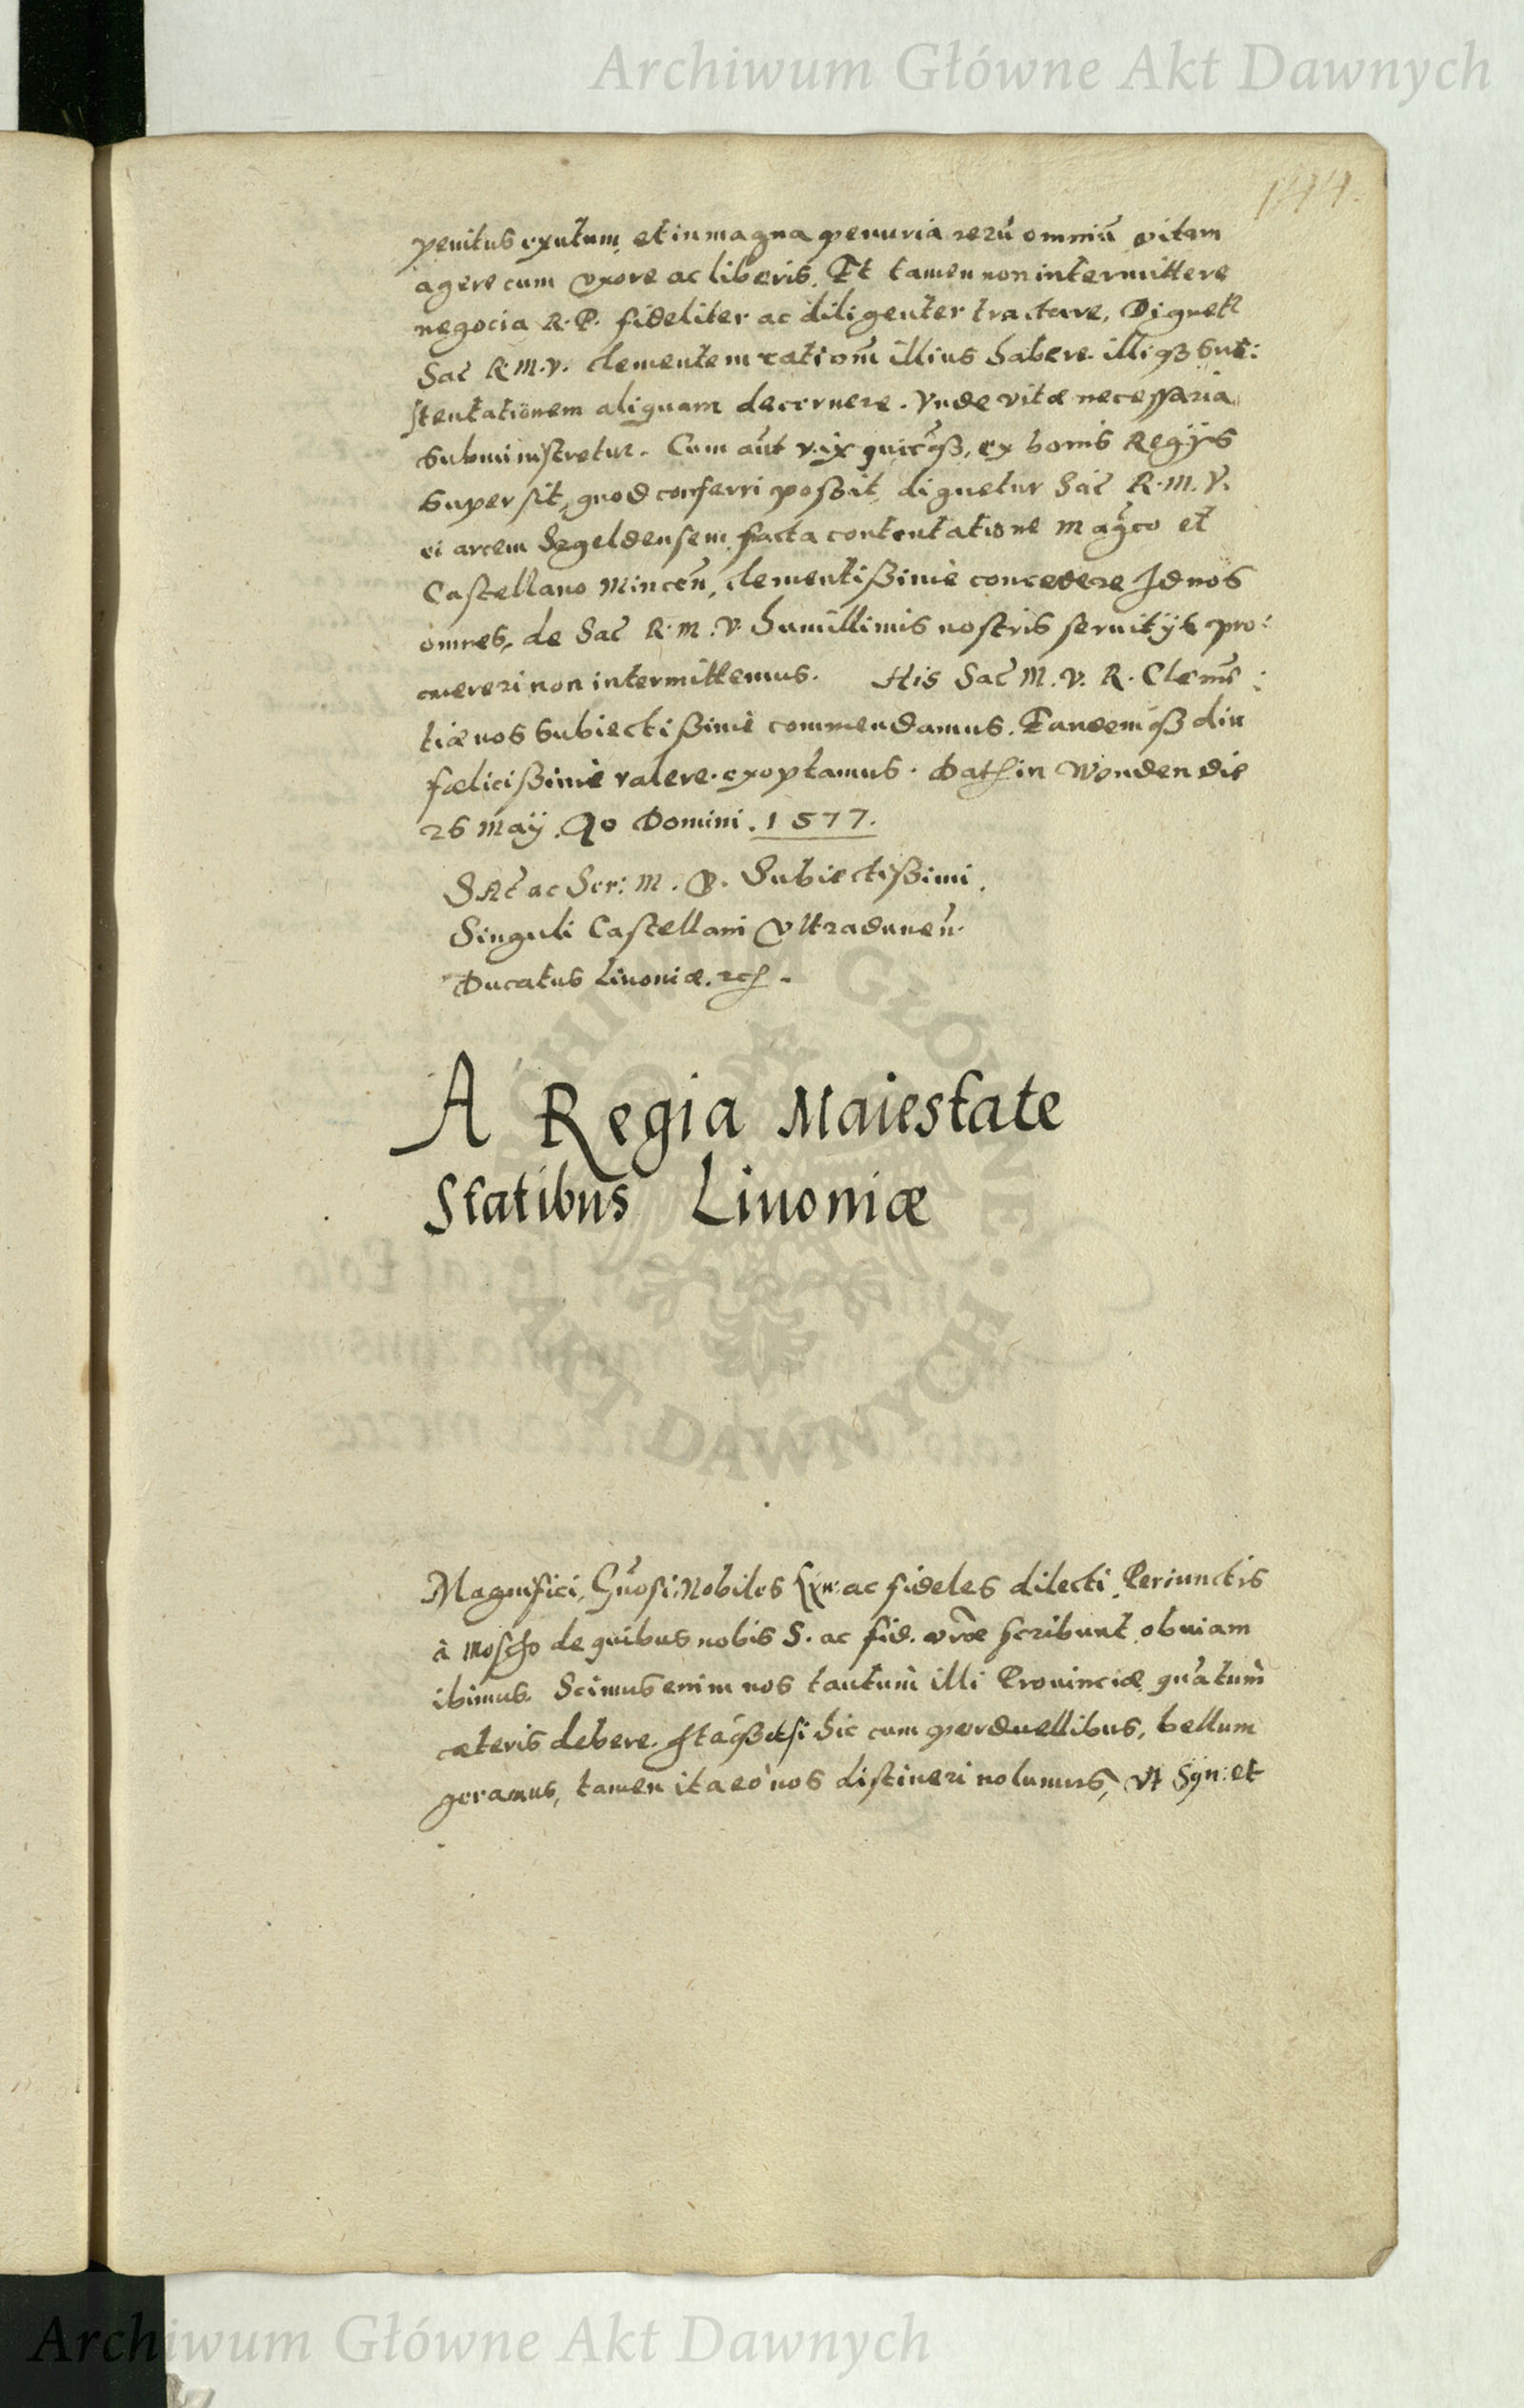 Archiwum Główne Akt Dawnych
144.
penitus exutum, et in magna penuria rerū omniū vitam
agere cum vxore ac liberis. Et tamen non intermittere
negocia R. P. fideliter ac diligenter tractare, Dignetr
Sac R. M. V. clementem rationẽ illius habere illiqꝫ sus:
stentationem aliquam decernere. Vnde vitæ necessaria
subministretur. Cum aūt vix quicqꝫ, ex bonis Regijs
supersit, quod conferri poßit, dignetur Sac R. M. V.
ei arcem Segeldensem, facta contentatione Magco et
Castellano Mincen, clementißimè concedere Id nos
omnes, de Sac R. M. V. humillimis nostris seruitijs pro:
mereri non intermittemus. His Sac M. V. R. Clemẽ:
tiæ nos subiectißimè commendamus. Tandemqꝫ diu
fælicißimè valere exoptamus. Dat in Wenden die
26 Maij. Ao Domini. 1577.
Sac ac Ser: M. V. Subiectißimi.
Singuli Castellani Vltradunen
Ducatus Liuoniæ. etc.
A Regia Maiestate
Statibus Liuoniæ
ARCHIWUM GŁÓWNE AKT DAWNYCH
Magnifici, Gñosi, Nobiles Syn: ac fideles dilecti,
à Moscho de quibus nobis S. ac fid. vræ scribunt obuiam
ibimus. Scimus enim nos tantum illi Prouinciæ quātum
cæteris debere. Itaqꝫ etsi hic cum perduellibus, bellum
geramus, tamen ita eò nos distineri nolumus, vt Syn: et
Archiwum Główne Akt Dawnych